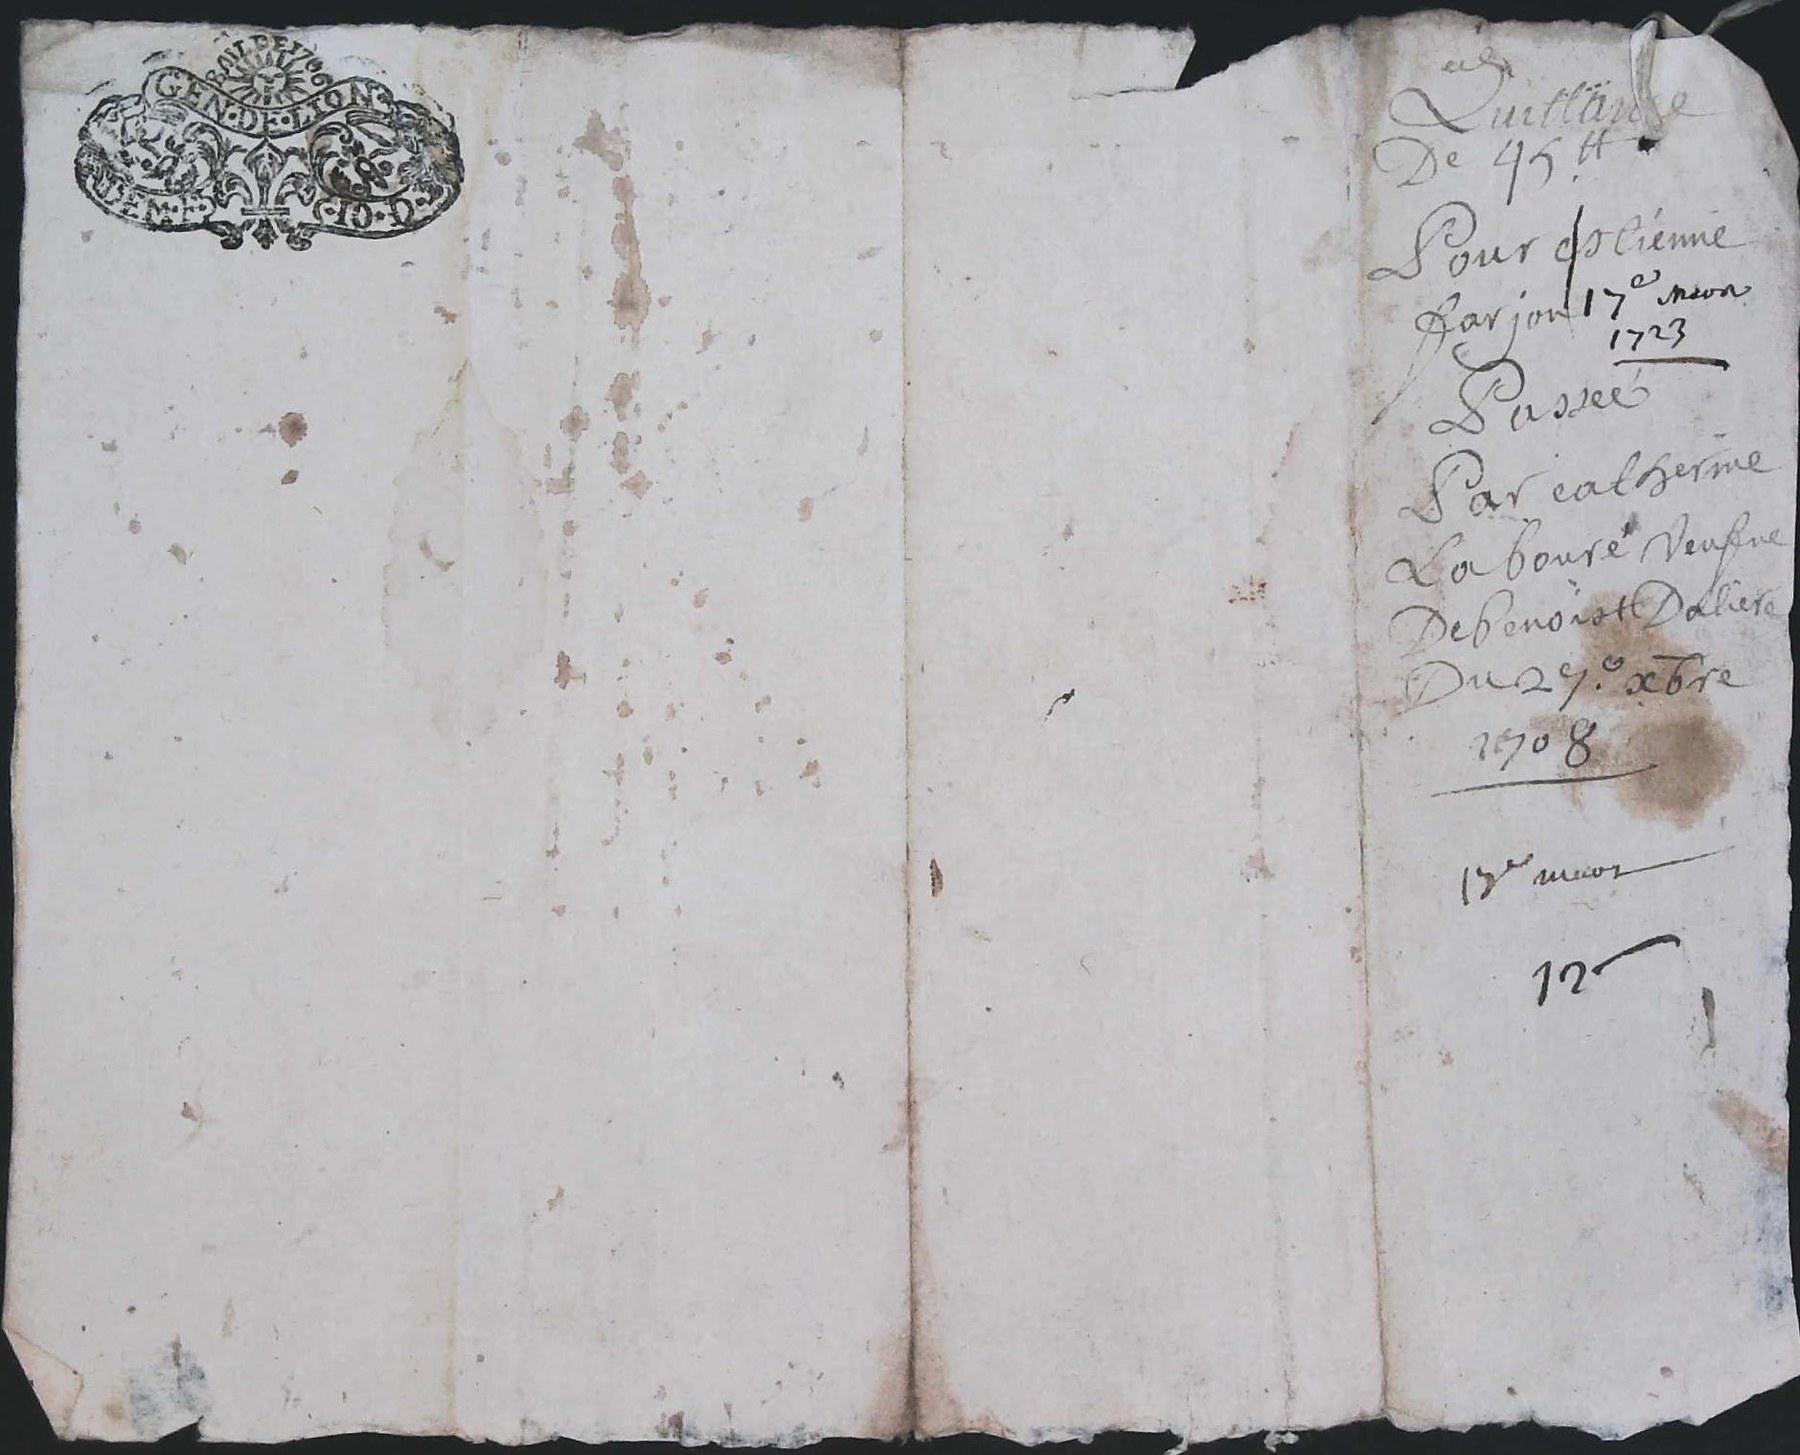 BAIL DE 1706
GEN·DE·LION
DEM·F· ·10·D·
Quittance
De 45 ₶
Pour estienne
farjon 17e
1723
Passeé
Par catherine
Labouré Veufve
De benoist Daliere
Du 27.e xbre
1708
17e
12